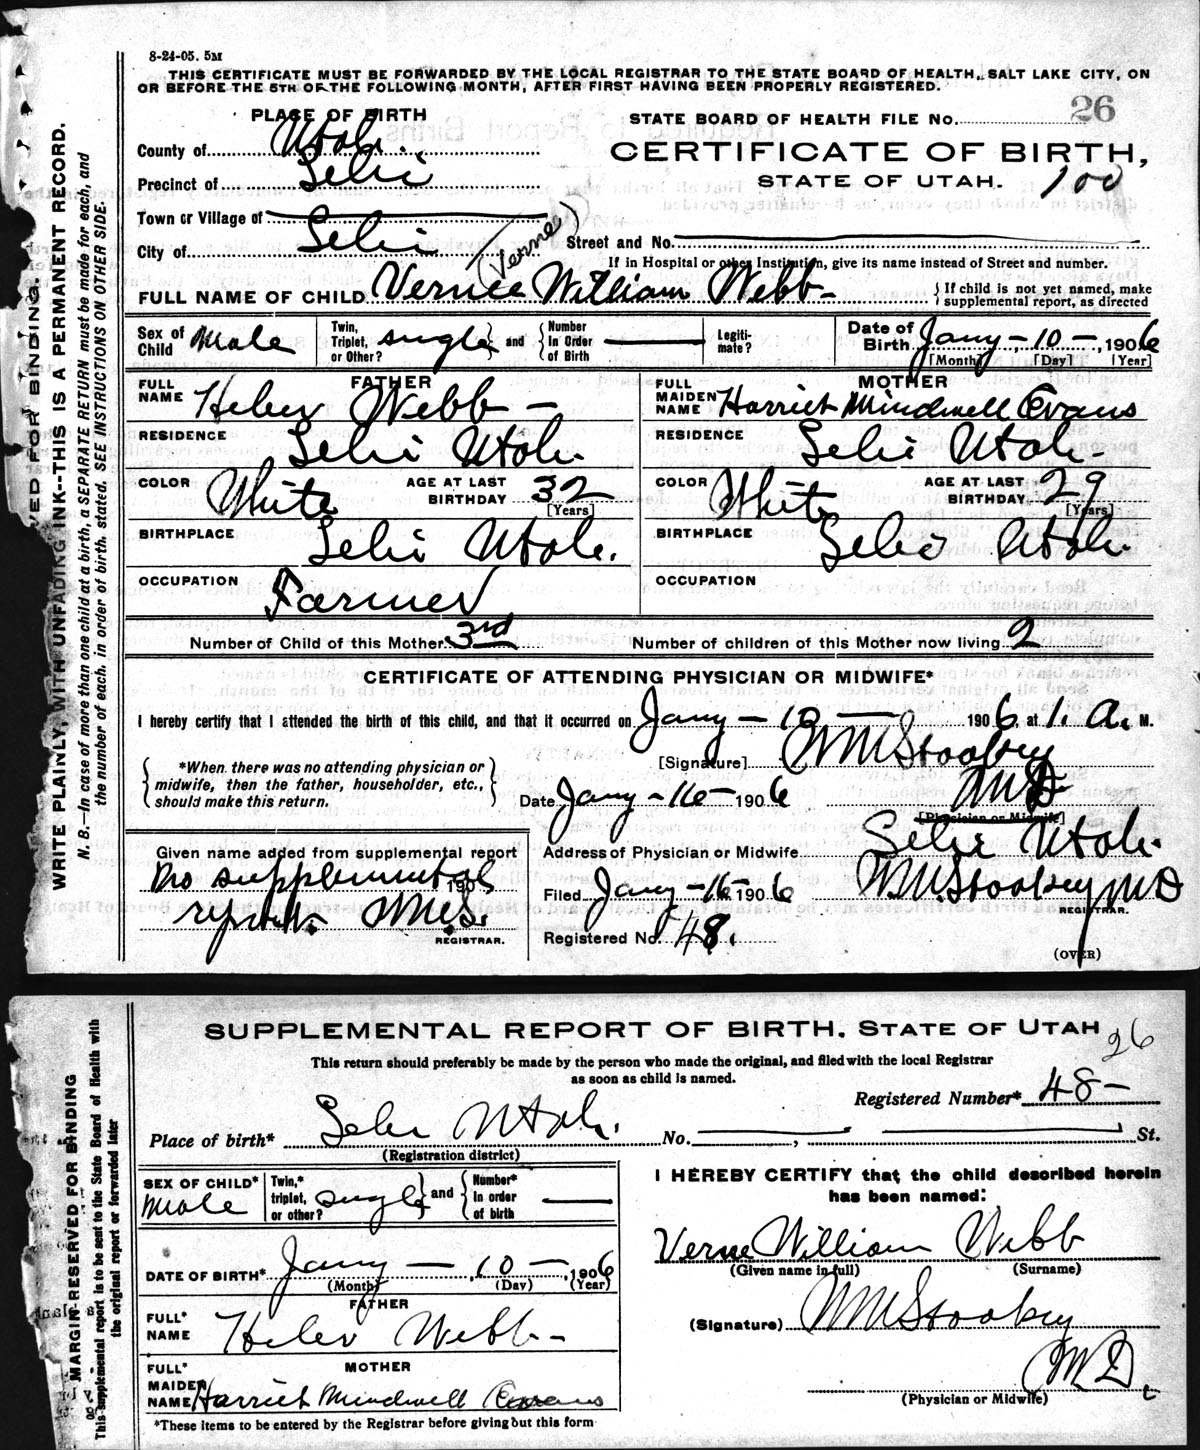 8-24-05. 5M
THIS CERTIFICATE MUST BE FORWARDED BY THE LOCAL REGISTRAR TO THE STATE BOARD OF HEALTH, SALT LAKE CITY, ON
OR BEFORE THE 5TH OF THE FOLLOWING MONTH, AFTER FIRST HAVING BEEN PROPERLY REGISTERED.
PLACE OF BIRTH
STATE BOARD OF HEALTH FILE No. 26
County of Utah.
CERTIFICATE OF BIRTH,
Precinct of Lehi
STATE OF UTAH. 100
Town or Village of
City of Lehi (Verne) Street and No.
If in Hospital or other Institution, give its name instead of Street and number.
FULL NAME OF CHILD Vernee William Webb - } If child is not yet named, make supplemental report, as directed
Sex of Child Male Twin, Triplet, or Other? single and Number In Order of Birth Legiti- mate? Date of Birth Jany - 10 - 1906
[Month] [Day] [Year]
FATHER MOTHER
FULL NAME Heber Webb - FULL MAIDEN NAME Harriet Mindwell Evans
RESIDENCE Lehi Utah. RESIDENCE Lehi Utah.
COLOR White AGE AT LAST BIRTHDAY 32 [Years] COLOR White AGE AT LAST BIRTHDAY 29 [Years]
BIRTHPLACE Lehi Utah. BIRTHPLACE Lehi Utah.
OCCUPATION Farmer OCCUPATION
Number of Child of this Mother 3rd Number of children of this Mother now living 2
CERTIFICATE OF ATTENDING PHYSICIAN OR MIDWIFE*
I hereby certify that I attended the birth of this child, and that it occurred on Jany - 10 - 1906 at 1. A. M.
*When there was no attending physician or midwife, then the father, householder, etc., should make this return.
[Signature] WM Stookey MD
[Physician or Midwife]
Date Jany - 16 - 1906
Address of Physician or Midwife Lehi Utah.
Given name added from supplemental report
No supplemental 190
report. W.M.S.
REGISTRAR.
Filed Jany - 16 1906 W.M. Stookey MD
REGISTRAR.
Registered No. 48.
(OVER)
VED FOR BINDING.
WRITE PLAINLY, WITH UNFADING INK--THIS IS A PERMANENT RECORD.
N. B.—In case of more than one child at a birth, a SEPARATE RETURN must be made for each, and
the number of each. in order of birth. stated. SEE INSTRUCTIONS ON OTHER SIDE.
SUPPLEMENTAL REPORT OF BIRTH. STATE OF UTAH 26
This return should preferably be made by the person who made the original, and filed with the local Registrar
as soon as child is named.
Registered Number* 48 -
Place of birth* Lehi Utah. No. , St.
(Registration district)
SEX OF CHILD* Male Twin,* triplet, or other? single and Number* In order of birth
DATE OF BIRTH* Jany - 10 - 1906
(Month) (Day) (Year)
FATHER
FULL* NAME Heber Webb -
MOTHER
FULL* MAIDEN NAME Harriet Mindwell Evans
*These items to be entered by the Registrar before giving out this form
I HEREBY CERTIFY that the child described herein
has been named:
Verne William Webb
(Given name in full) (Surname)
(Signature) WM Stookey
M.D.
(Physician or Midwife)
MARGIN RESERVED FOR BINDING
This supplemental report is to be sent to the State Board of Health with
the original report or forwarded later